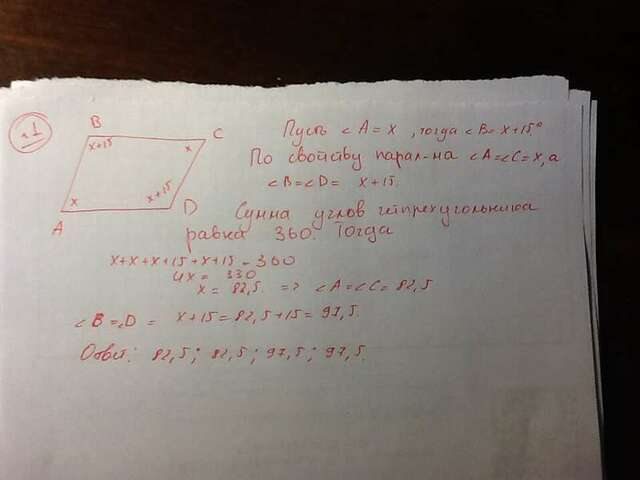 1
B
C
x+15
x
Пусть ∠A=x, тогда ∠B=x+15°
По свойству парал-ма ∠A=∠C=x, а
∠B=∠D= x+15.
x
x+15
D
A
Сумма углов четырехугольника
равна 360. Тогда
x+x+x+15+x+15=360
4x= 330
x= 82,5 => ∠A=∠C= 82,5
∠B=∠D= x+15=82,5+15=97,5.
Ответ: 82,5; 82,5; 97,5; 97,5.